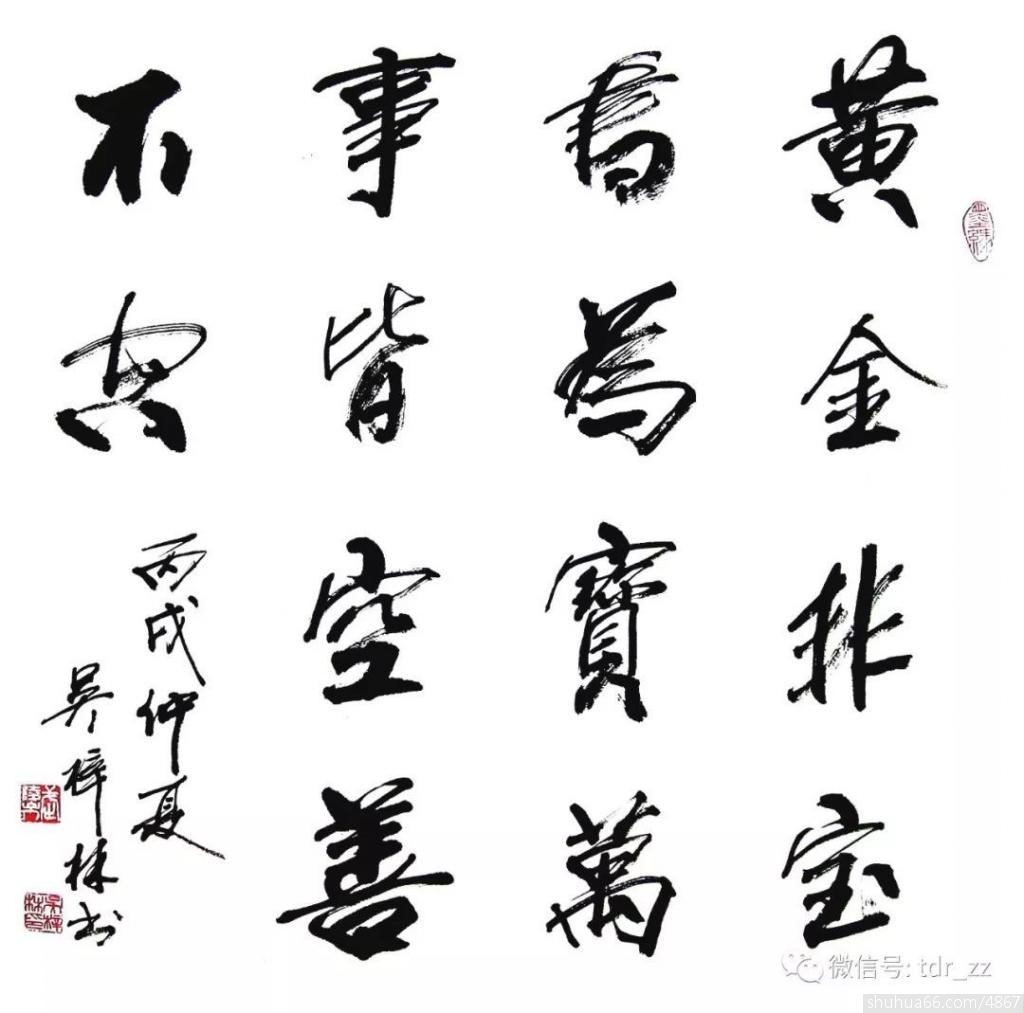 黄金非宝
書為寶萬
事皆空善
不空
丙戌仲夏
吴梓林书
微信号: tdr_zz
shuhua66.com/4867